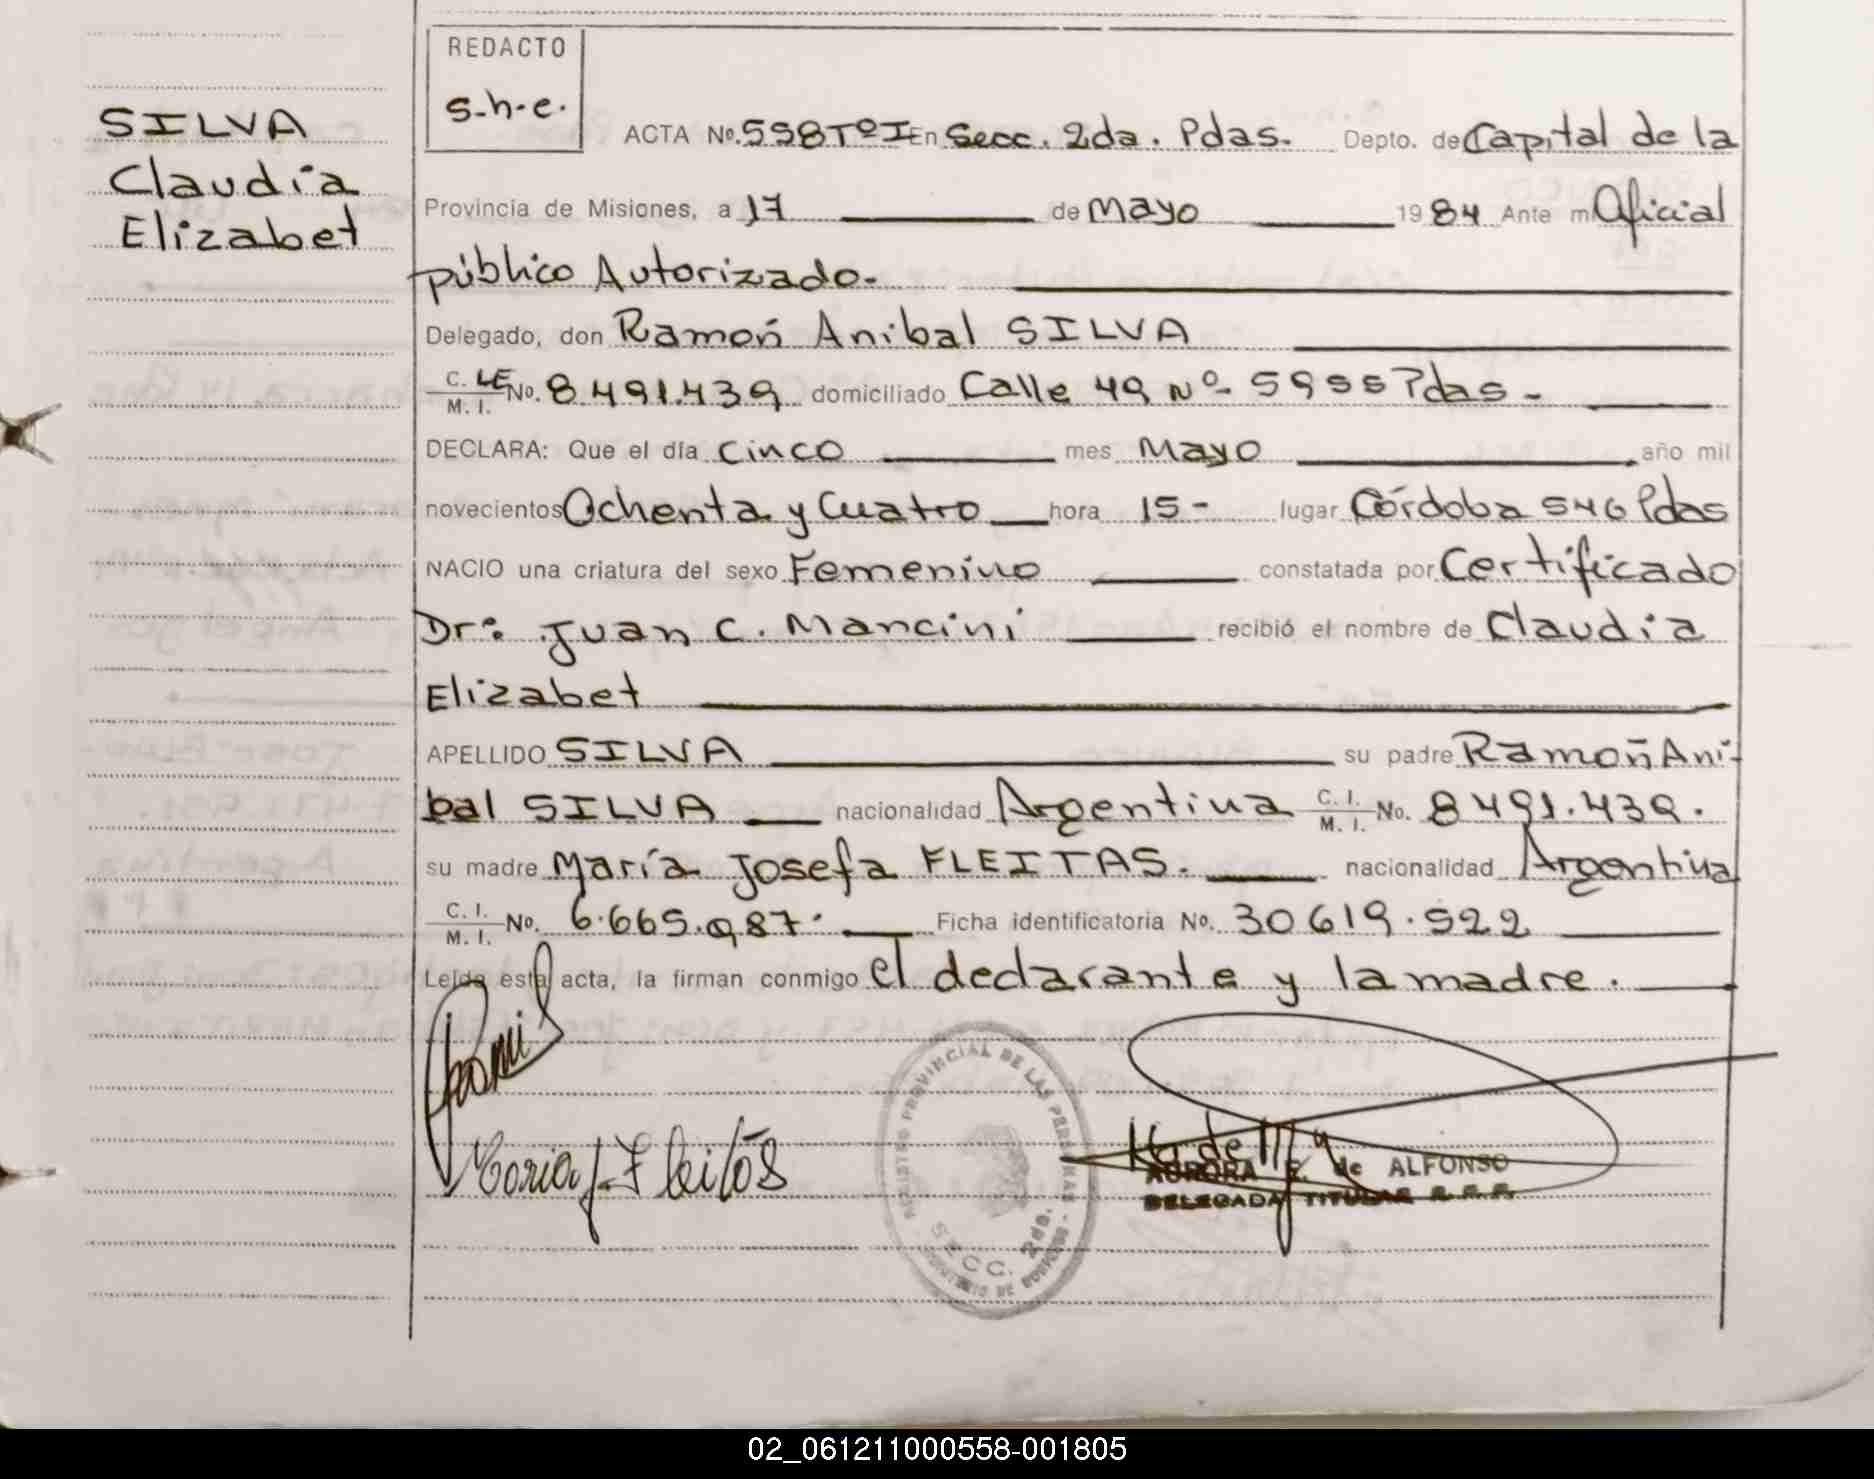 REDACTO
s-h-e.
SILVA
Claudia
Elizabet
ACTA No. 558 Tº I En Secc. 2da. Pdas. Depto. de Capital de la
Provincia de Misiones, a 17 de Mayo 1984 Ante mi Oficial
público Autorizado.
Delegado, don Ramón Anibal SILVA
C. LE M. I. No. 8.491.439 domiciliado Calle 49 Nº 5955 Pdas -
DECLARA: Que el día Cinco mes Mayo año mil
novecientos Ochenta y Cuatro hora 15- lugar Córdoba 546 Pdas
NACIO una criatura del sexo Femenino constatada por Certificado
Dr: Juan C. Mancini recibió el nombre de Claudia
Elizabet
APELLIDO SILVA su padre Ramón Aní-
bal SILVA nacionalidad Argentina C. I. M. I. No. 8491.439.
su madre María Josefa FLEITAS. nacionalidad Argentina
C. I. M. I. No. 6.665.987. Ficha identificatoria No. 30619.522
Leída esta acta, la firman conmigo el declarante y la madre.
REGISTRO PROVINCIAL DE LAS PERSONAS
SECC. 2da.
MINISTERIO DE GOBIERNO
Maria J. Fleitas
AURORA E. de ALFONSO
DELEGADA TITULAR R. P. P.
02_061211000558-001805